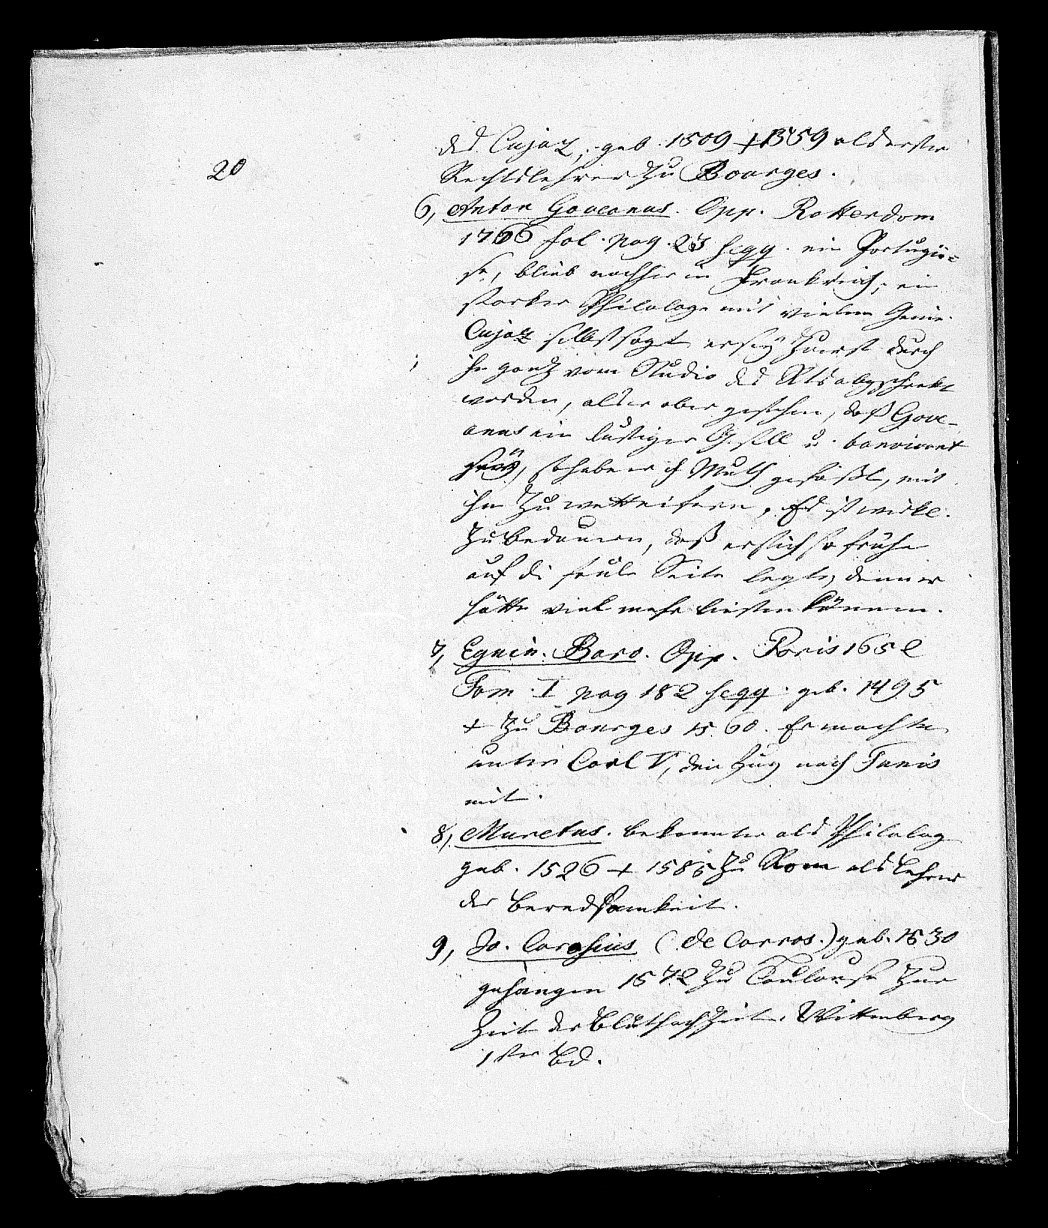 20
des Cujaz, geb. 1509 + 1559 als erster
Rechtslehrer zu Bourges.
6, Anton Goveanus. Opp. Rotterdam
1766 fol. pag. 23 seqq. ein Portugie=
se, blieb nachher in Frankreich, ein
starker Philolog mit vielem Genie.
Cujaz selbst sagt er sey zuerst durch
ihn ganz vom Studio des abgeschrekt
worden, als er aber gesehen, daß Gove-
anus ein lustiger Gesell u. bonvivant
sey, so habe er Muth gefaßt, mit
ihm zu wetteifern. Es ist wirkl.
zu bedauern, daß er sich so frühe
auf die faule Seite legte, denn er
hätte viel mehr leisten können.
7, Eguin. Baro. Opp. Paris 1652
Tom. I pag 182 seqq. geb. 1495
+ zu Bourges 1560. Er machte
unter Carl V, den Zug nach Tunis
mit.
8, Muretus. bekannter als Philolog
geb. 1526 + 1585 zu Rom als Lehrer
der Beredsamkeit.
9, Jo. Corasius (de Corras.) geb. 1530
gehangen 1572 zu Toulouse zur
Zeit der Bluthochzeit. Wittenberg
1ster Bd.